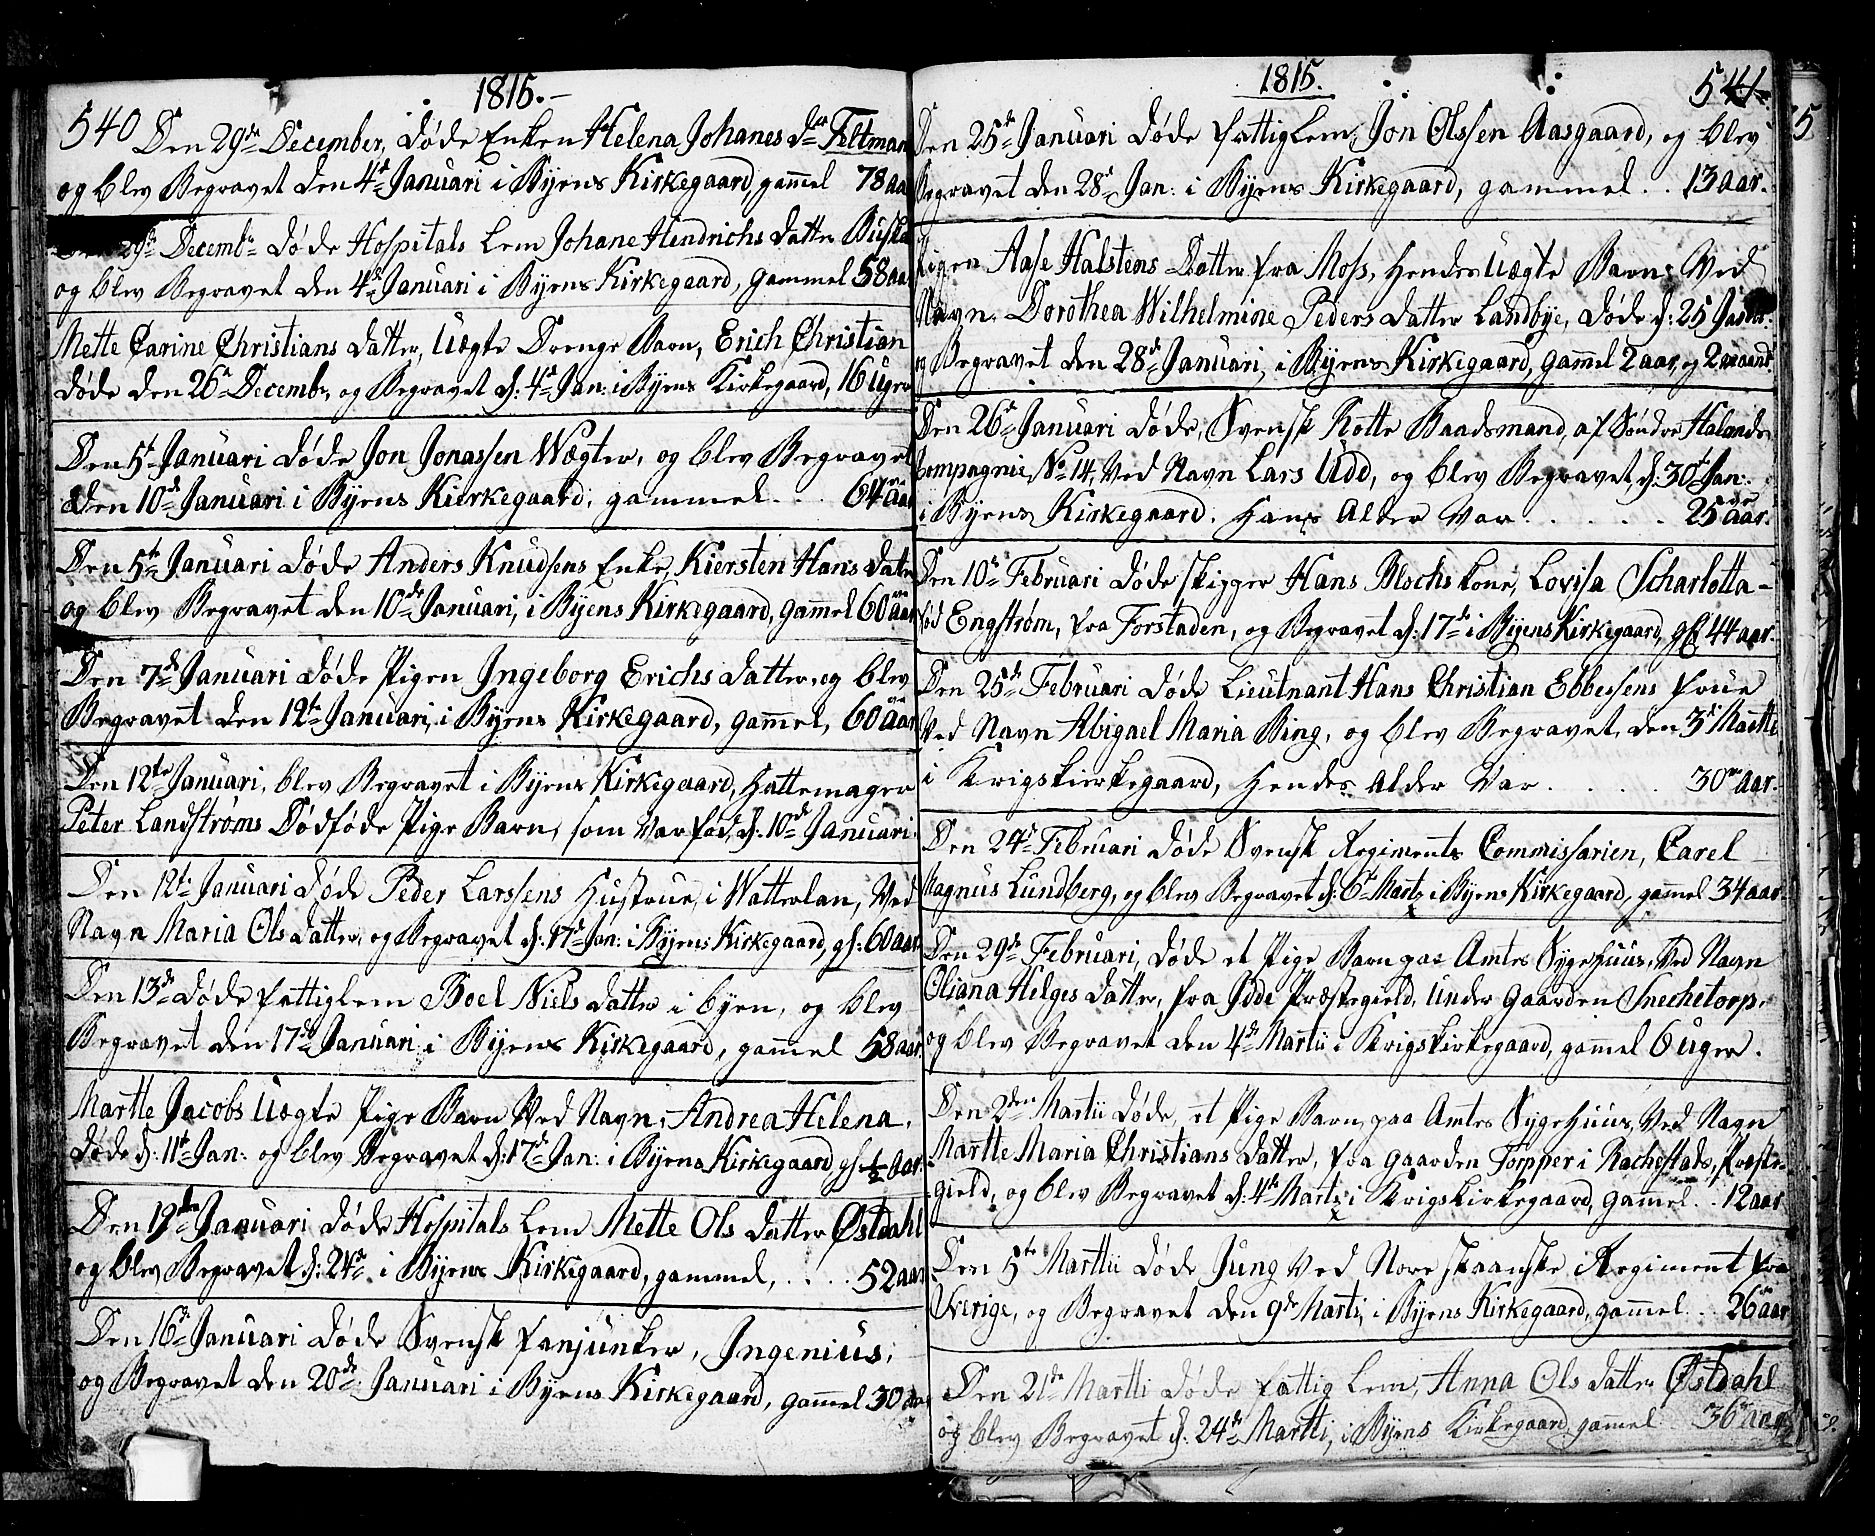 1815.
540 Den 29de December, døde Enken Helena Johanes dtr Feltman
og blev Begravet den 4de Januari i Byens Kirkegaard, gammel 78 aar
29de Decembr døde Hospitals Lem Johane Hendrichs datter
og blev Begravet den 4de Januari i Byens Kirkegaard, gammel 58 aar
Mette Carine Christians datter, Uægte Drenge Barn, Erich Christian
døde den 26de Decembr, og Begravet d: 4de Jan: i Byens Kirkegaard, 16 Uger
Den 5te Januari døde Jon Jonassen Wægter, og blev Begravet
den 10de Januari i Byens Kierkegaard, gammel . . . 64 aar
Den 5te Januari døde Anders Knudsens Enke, Kiersten Hans dater
og blev Begravet den 10de Januari, i Byens Kirkegaard, gammel 60 aar
Den 7de Januari døde Pigen Ingeborg Erichs datter, og blev
Begravet den 12te Januari, i Byens Kirkegaard, gammel, 60 aar
Den 12te Januari, blev Begravet i Byens Kirkegaard, Hattemager
Peter Landstrøms Dødføde Pige Barn, som Var fød, d: 10de Januari
Den 12te Januari døde Peder Larssens Hustrue, i Watterlan, Ved
Navn Maria Ols datter, og Begravet d: 17de Jan: i Byens Kirkegaard, gl: 60 aar.
Den 13de døde fattiglem Boel Niels datter i byen, og blev
Begravet den 17de Januari i Byens Kirkegaard, gammel 58 aar
Martte Jacobs Uægte Pige Barn Ved Navn, Andrea Helena,
døde d: 11te Jan: og blev Begravet d: 17de Jan: i Byens Kirkegaard gl ½ aar.
Den 19den Januari døde Hospitals Lem Mette Ols datter Østdahl
og blev Begravet d: 24de i Byens Kirkegaard, gammel, . . . . 52 aar
Den 16de Januari døde Svensk fanjunker, Ingenius,
og Begravet den 20de Januari i Byens Kirkegaard, gammel 30 aar
1815.
541
Den 25de Januari døde fattiglem, Jon Olssen Aasgaard, og blev
Begravet den 28de Jan: i Byens Kirkegaard, gammel . . 13 aar.
Pigen Aase Halstens Datter fra Moss, Hendes Uægte Barn, Ved
Navn, Dorothea Wilhelmine Peders datter Landbye, døde d: 25 Januar.
og Begravet den 28de Januari, i Byens Kirkegaard, gammel 2 aar, og 2 maand.
Den 26de Januari døde, Svensk Rotte Baadsmand, af Søndre Halands
Compagnie, No 14, Ved Navn Lars Udd, og blev Begravet, d: 30te Jan:
i Byens Kirkegaard. Hans Alder Var . . . . . 25 aar.
Den 10de Februari døde skipper Hans Blochs kone, Lovisa Scharlotta
fød Engstrøm, fra Forstaden, og Begravet d: 17de i Byens Kirkegaard, gl 44 aar.
Den 25de Februari døde Lieutnant Hans Christian Ebbessens frue
Ved Navn Abigael Maria Bing, og blev Begravet, den 3de Martti
i Krigskierkegaard, Hendes Alder Var . . . . . 30 aar.
Den 24de Februari døde Svensk Regiments Commissarien, Carel
Magnus Lundberg, og blev Begravet d: 6te Martz i Byens Kirkegaard, gammel 34 aar.
Den 29de Februari, døde et Pige Barn paa Amtes Sygehuus, Ved Navn
Oliana Helges datter, fra Idde Præstegield, Under gaarden Snechetorp,
og blev Begravet den 4de Martii i Krigskirkegaard, gammel 6 uger.
Den 2den Martii døde, et Pige Barn, paa Amtes Sygehuus, Ved Navn
Martte Maria Christians datter, fra gaarden Torpper i Rachestads, Præste-
gield, og blev Begravet d: 4de Martz i Krigskirkegaard, gammel . . 12 aar
Den 5te Martii døde Jung Ved Nore skaanske Regiment fra
Sverige, og Begravet den 9de Marti, i Byens Kirkegaard, gammel . . 26 aar
Den 21de Martti døde fattig Lem, Anna Ols datter Østdahl
og blev Begravet d: 24de Martti, i Byens Kirkegaard, gamel 36 aar